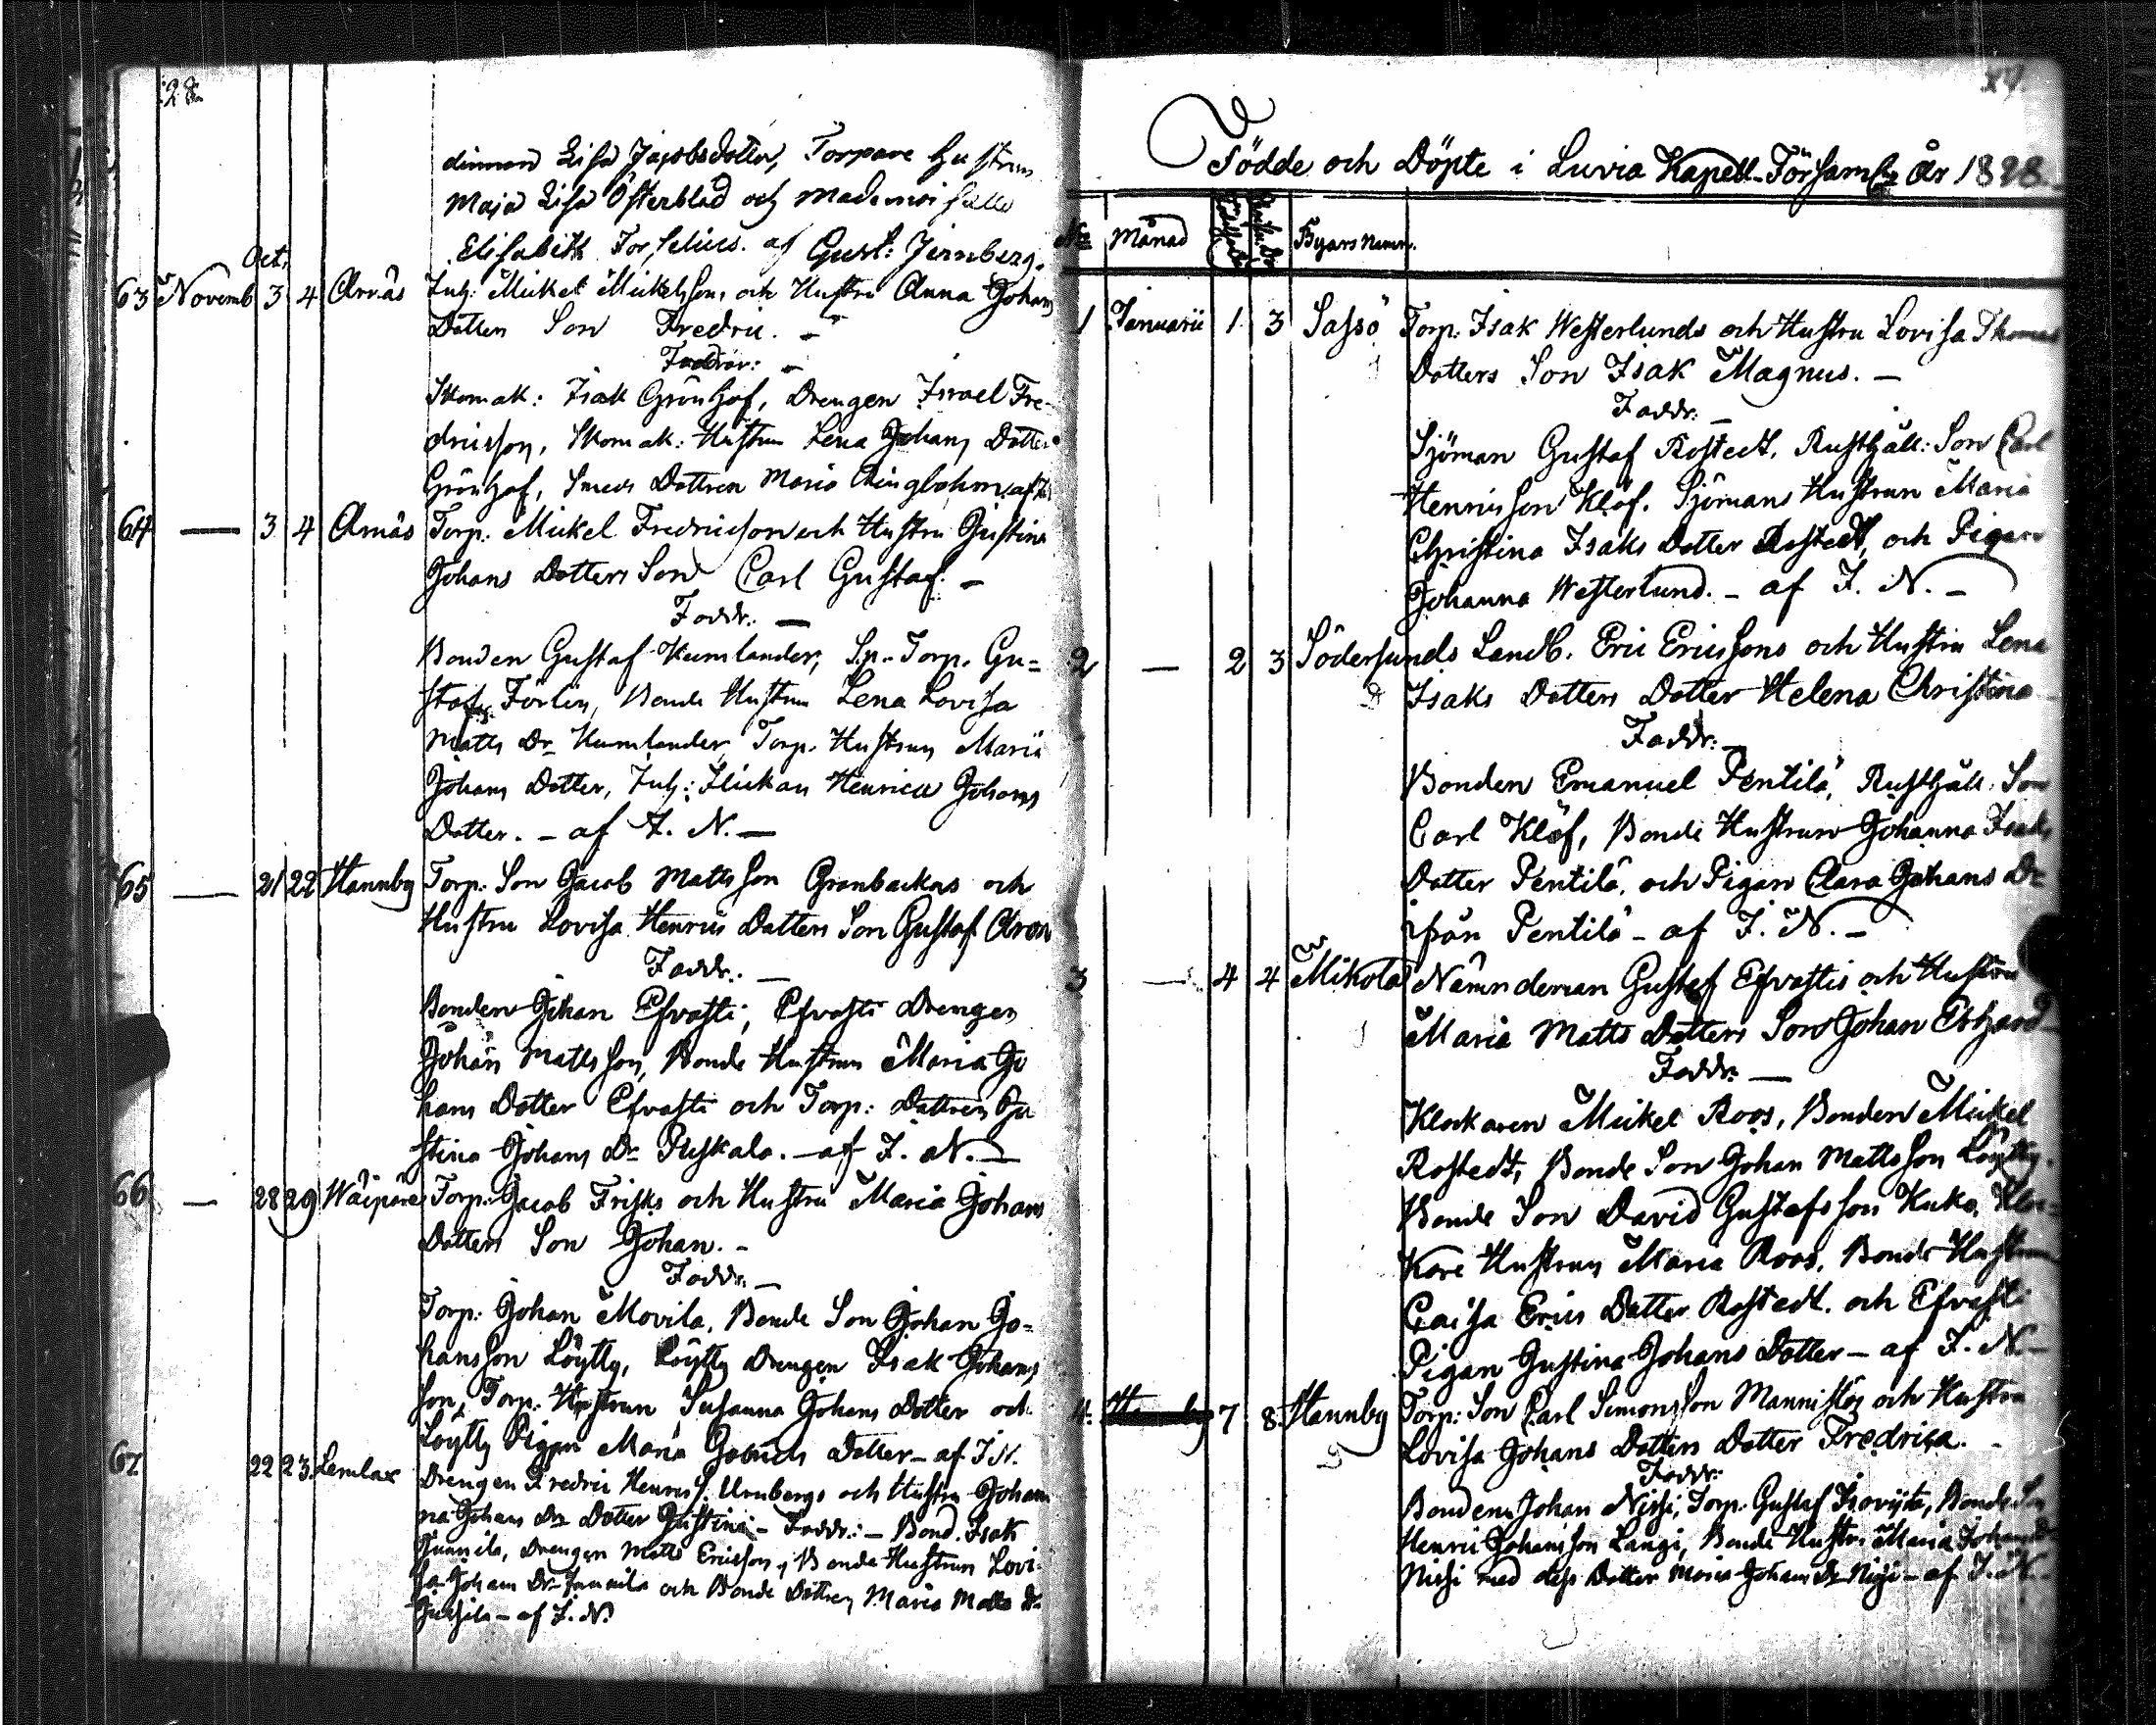 28.
dinnan Lisa Jacobsdotter, Torpare hustrun
Maja Lisa Österblad och Mademoiselle
Elisabeth Forselius. af Gust: Jernberg.
Oct.
63 Novemb 3 4 Arnäs Inh: Mickel Mickelsson, och Hustru Anna Johans
Dotters Son Fredric. -
Faddrar: -
Skomak: Isak Grönhof, Drengen Israel Fre-
dricsson, Skomak: Hustrun Lena Johans Dotter
Grönhof, Smeds Dottren Maria Ringbohm, af
64 — 3 4 Arnäs Torp. Mickel Fredricsson och Hustru Gustina
Johans Dotters Son Carl Gustaf. -
Faddr: —
Bonden Gustaf Kumlander, Sp. Torp. Gu=
staf Förlin, Bonde Hustrun Lena Lovisa
Matts Dr Kumlander, Torp. Hustrun Maria
Johans Dotter, Inh: Flickan Henrica Johans
Dotter. - af I. N. —
65 — 21 22 Hannby Torp: Son Jacob Mattsson Granbackas och
Hustru Lovisa Henrics Dotters Son Gustaf Aron
Faddr: —
Bonden Johan Efrasti, Efrasti Drengen
Johan Mattsson, Bonde Hustrun Maria Jo
hans Dotter Efrasti och Torp: Dottren Gu
stina Johans Dr Puskala. - af I. N. —
66 — 28 29 Wäipäre Torp: Jacob Frisks och Hustru Maria Johans
Dotters Son Johan. -
Faddr: —
Torp: Johan Movila, Bonde Son Johan Jo-
hansson Löytty, Löytty Drengen Isak Johans
son, Torp. Hustrun Susanna Johans Dotter och
Löytty Pigan Maria Gabriels Dotter - af I N.
67. 22 23. Lemlax Drengen Fredric Henrics. Urnbergs och Hustru Johan
na Johans Dr Dotter Gustina - Faddr: - Bond. Isak
Junnila, Drengen Matts Ericsson, Bonde Hustrun Lovi-
sa Johans Dr Junnila och Bonde Dottren Maria Matts Dr
Jussila - af I. N.
Födde och Döpte i Luvia Kapell-Församl: År 1828.
No Månad Byars Namn.
1 Januarii 1. 3 Sassö Torp: Isak Westerlunds och Hustru Lovisa Thomas
Dotters Son Isak Magnus. —
Faddr: —
Sjöman Gustaf Rostedt, Rusthåll: Son Carl
Henricsson Klöf. Sjömans Hustrun Maria
Christina Isaks Dotter Rostedt, och Pigan
Johanna Westerlund. - af I. N. -
2 — 2 3 Södersunds Landb. Eric Ericssons och Hustru Lena
Isaks Dotters Dotter Helena Christina
Faddr: —
Bonden Emanuel Pentilä, Rusthåll: Son
Carl Klöf, Bonde Hustrun Johanna Isaks
Dotter Pentilä, och Pigan Clara Johans Dr
ifrån Pentilä - af I. N. -
3 — 4 4 Mikola Nämndeman Gustaf Efrastis och Hustru
Maria Matts Dotters Son Johan Erhard
Faddr: —
Klockaren Mickel Roos, Bonden Mickel
Rostedt, Bonde Son Johan Mattsson Löytty.
Bonde Son David Gustafsson Kuko. Kloc=
kare Hustrun Maria Roos. Bonde Hustrun
Caisa Erics Dotter Rostedt. och Efrasti
Pigan Gustina Johans Dotter - af I. N -
4. 7 8 Hannby Torp: Son Carl Simonsson Mannistös och Hustru
Lovisa Johans Dotters Dotter Fredrica.
Faddr:
Bonden Johan Nissi, Torp: Gustaf Isoviita, Bonde Son
Henric Johansson Langi, Bonde Hustr. Maria Johans Dr
Nissi med dess Dotter Maria Johans Dr Nissi - af I. N.